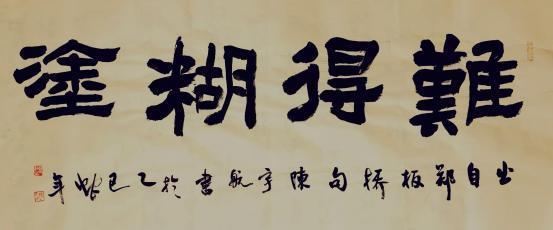 難得糊塗
出自鄭板橋句陳宇航書於乙巳蛇年